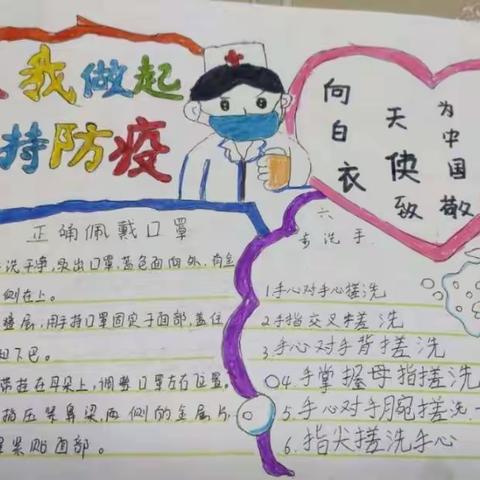 我做起
持防疫
向白衣
天使致
为中国敬
正确佩戴口罩
洗干净,取出口罩,蓝色面向外,有金
侧在上。
用手持口罩固定于面部,盖住
下巴。
带挂在耳朵上,调整口罩左右位置。
指压紧鼻梁两侧的金属片,
紧贴面部。
六
步洗手
1手心对手心搓洗
2手指交叉搓洗
3手心对手背搓洗
4.手掌握母指搓洗
5.手心对手腕搓洗.
6.指尖搓洗手心